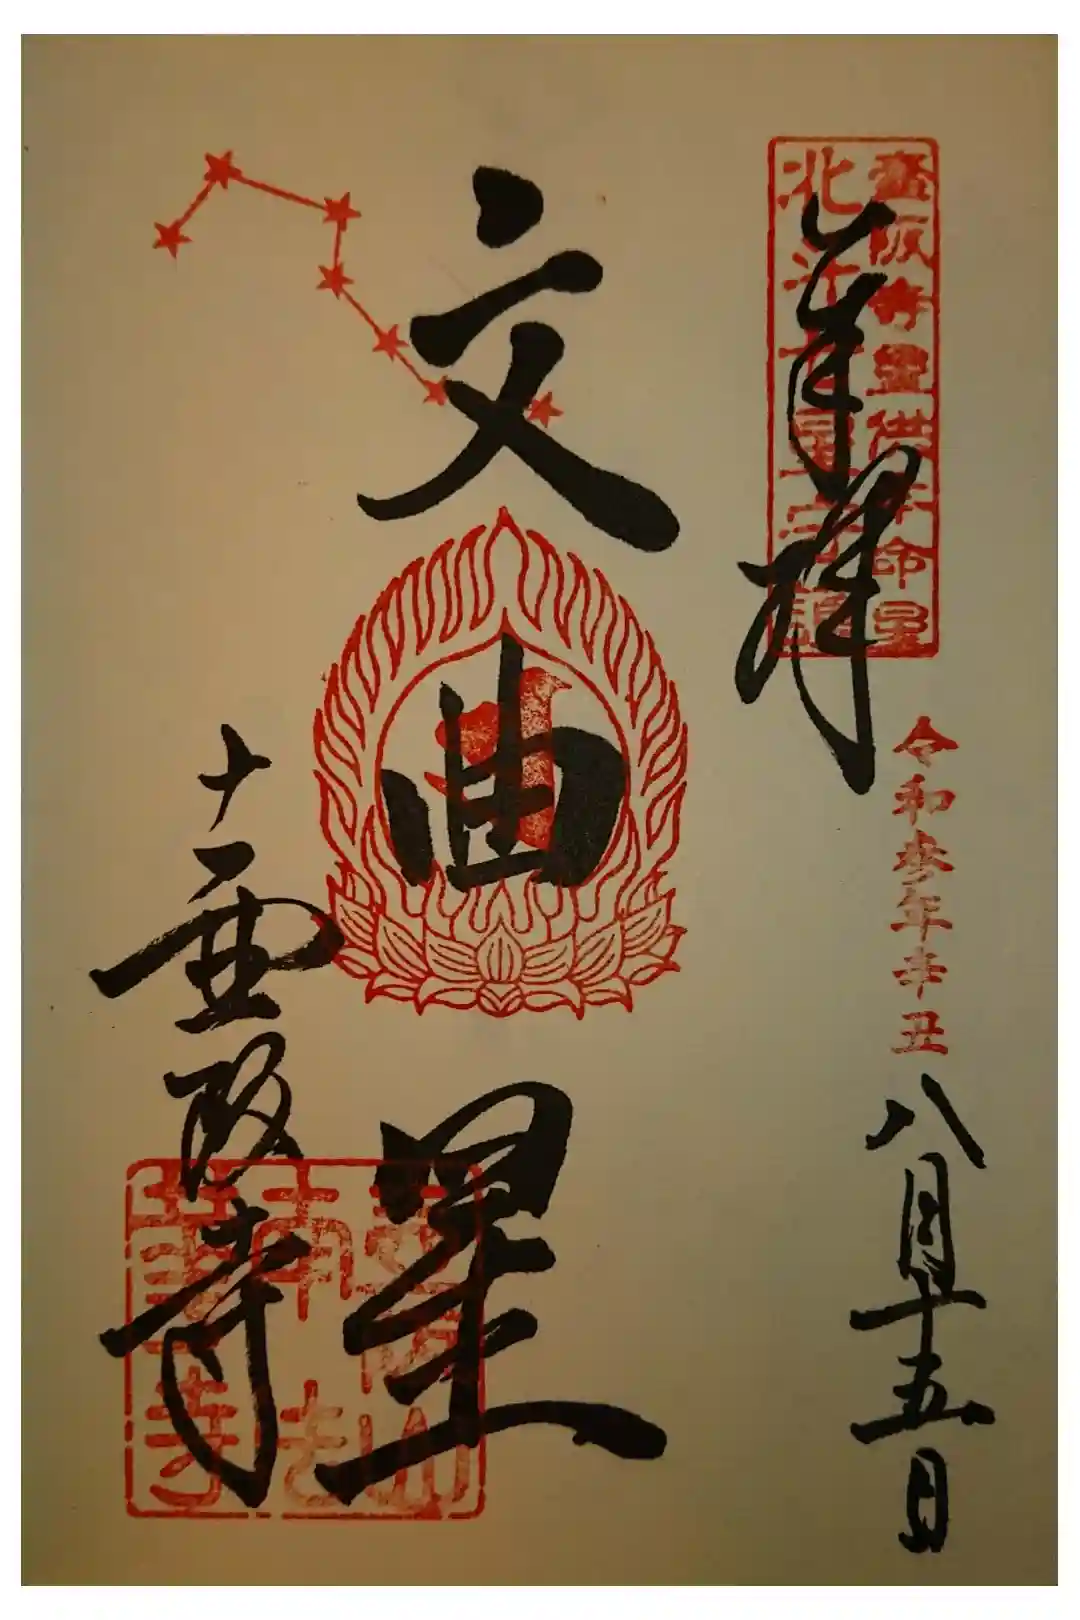 壷阪寺星供本命星
北斗七星守護
奉拝
令和参年辛丑
八月十五日
文曲星
壷阪寺
壷阪山
南法
華寺